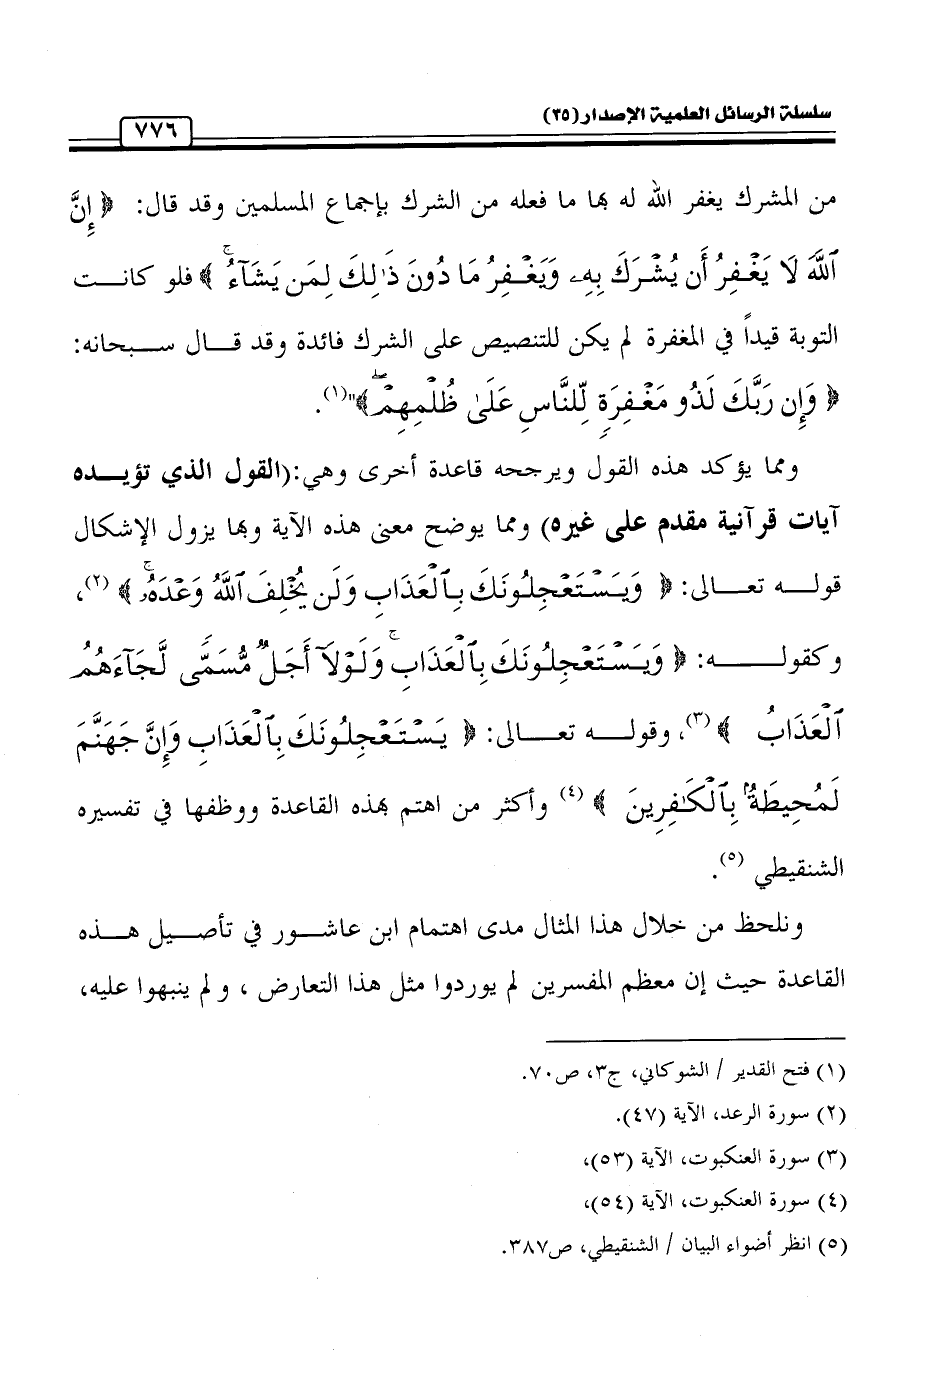 سلسلة الرسائل العلمية الإصدار (٣٥)
٧٧٦
من المشرك يغفر الله له بها ما فعله من الشرك بإجماع المسلمين وقد قال: ﴿ إِنَّ
ٱللَّهَ لَا يَغْفِرُ أَن يُشْرَكَ بِهِۦ وَيَغْفِرُ مَا دُونَ ذَٰلِكَ لِمَن يَشَآءُ ۚ ﴾ فلو كانت
التوبة قيداً في المغفرة لم يكن للتنصيص على الشرك فائدة وقد قال سبحانه:
﴿ وَإِن رَبَّكَ لَذُو مَغْفِرَةٍ لِّلنَّاسِ عَلَىٰ ظُلْمِهِمْ ۖ ﴾"(١).
ومما يؤكد هذه القول ويرجحه قاعدة أخرى وهي:(القول الذي تؤيده
آيات قرآنية مقدم على غيره) ومما يوضح معنى هذه الآية وبها يزول الإشكال
قوله تعالى: ﴿ وَيَسْتَعْجِلُونَكَ بِٱلْعَذَابِ وَلَن يُخْلِفَ ٱللَّهُ وَعْدَهُۥ ۚ ﴾ (٢)،
وكقوله: ﴿ وَيَسْتَعْجِلُونَكَ بِٱلْعَذَابِ ۚ وَلَوْلَآ أَجَلٌ مُّسَمًّى لَّجَآءَهُمُ
ٱلْعَذَابُ ﴾ (٣)، وقوله تعالى: ﴿ يَسْتَعْجِلُونَكَ بِٱلْعَذَابِ وَإِنَّ جَهَنَّمَ
لَمُحِيطَةٌۢ بِٱلْكَٰفِرِينَ ﴾ (٤) وأكثر من اهتم بهذه القاعدة ووظفها في تفسيره
الشنقيطي (٥).
ونلحظ من خلال هذا المثال مدى اهتمام ابن عاشور في تأصيل هذه
القاعدة حيث إن معظم المفسرين لم يوردوا مثل هذا التعارض ، ولم ينبهوا عليه،
(١) فتح القدير / الشوكاني، ج٣، ص٧٠.
(٢) سورة الرعد، الآية (٤٧).
(٣) سورة العنكبوت، الآية (٥٣)،
(٤) سورة العنكبوت، الآية (٥٤)،
(٥) انظر أضواء البيان / الشنقيطي، ص٣٨٧.